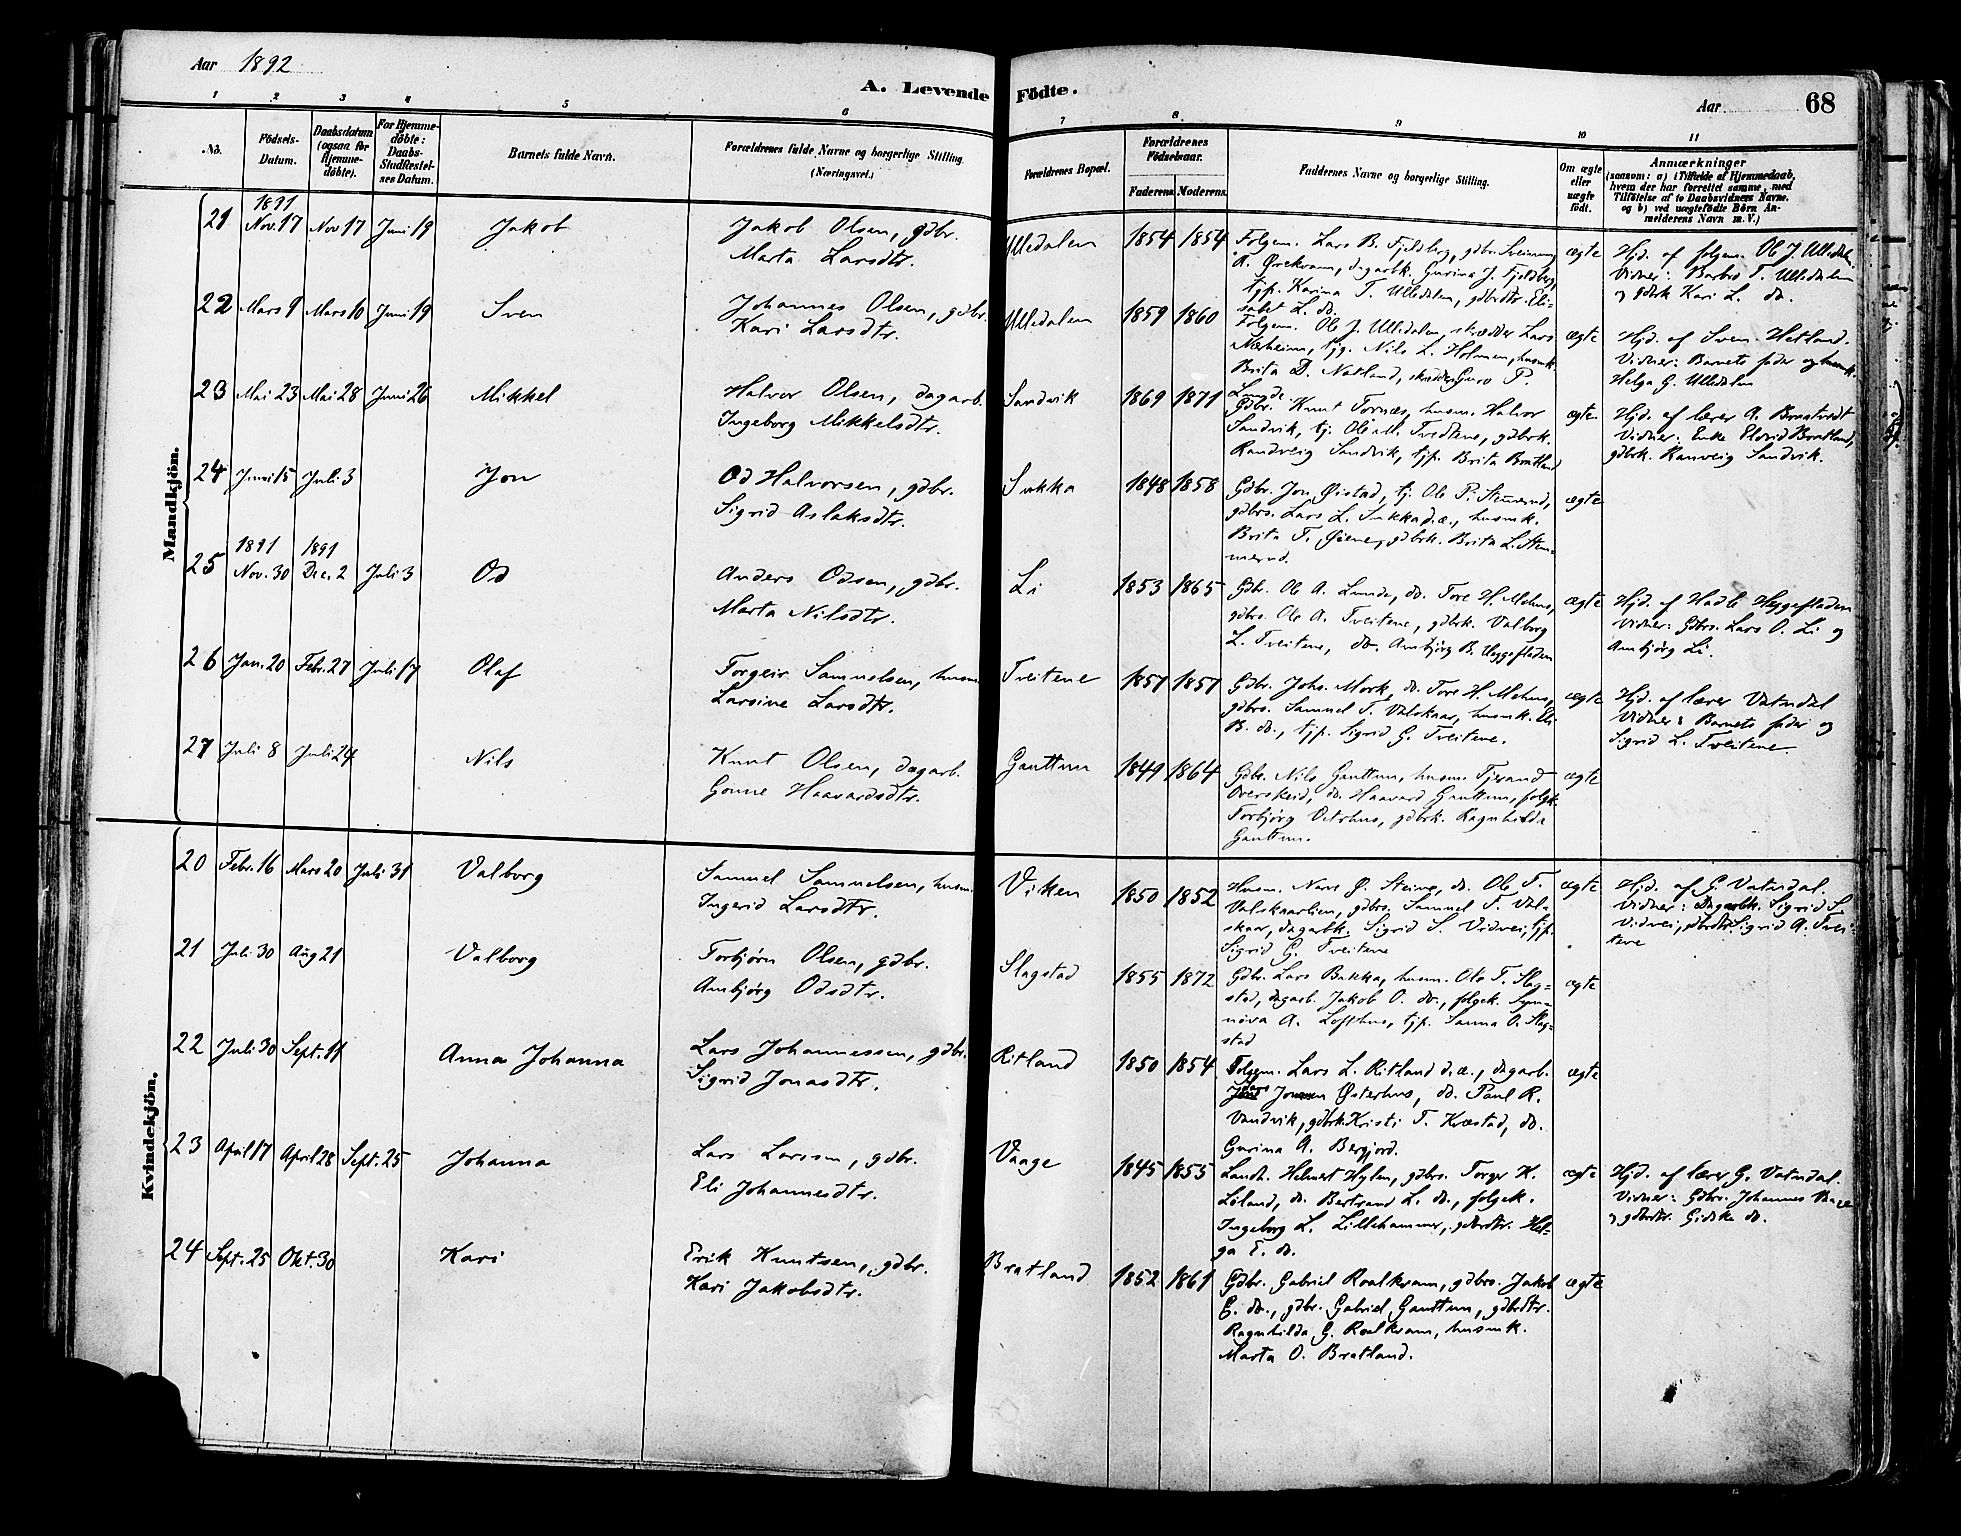 Aar 1892
A. Levende Födte.
Aar 68
1 2 3 4 5 6 7 8 9 10 11
No.
Födsels-
Datum.
Daabsdatum
(ogsaa for
Hjemme-
döbte).
For Hjemme-
döbte:
Daabs-
Stadfæstel-
ses Datum.
Barnets fulde Navn.
Forældrenes fulde Navne og borgerlige Stilling.
(Næringsvei.)
Forældrenes Bopæl.
Forældrenes
Födselsaar.
Faderens. Moderens.
Faddernes Navne og borgerlige Stilling.
Om ægte
eller
uægte
født.
Anmærkninger
(saasom: a) i Tilfælde af Hjemmedaab,
hvem der har forrettet samme, med
Tilföielse af to Daabsvidners Navne.
og b) ved uægtefödte Börn An-
melderens Navn m. V.)
Mandkjön.
1891
21 Nov. 17 Nov 17 Juni 19 Jakob
Jakob Olsen, gdbr.
Marta Larsdtr.
Ulledalen 1854 1854
Folgem. Lars B. Fjeldberg, gdbr.
A. Ørekvam, dagarbk. Gurina J. Fjeldberg,
tjp. Karina T. Ulledalen, gdbrdtr. Eli-
sabet L. do.
ægte
Hjd. af folgem. Ole J. Ulledalen
Vidner: Barbro T. Ulledalen
og gdbrk Kari L. do.
22 Mars 9 Mars 10 Juni 19 Sven
Johannes Olsen, gdbr.
Kari Larsdtr.
Ulledalen 1859 1860
Folgem. Ole J. Ulledalen, skrædder Lars
Nærheim, tjg. Nils L. Holmen, husmk.
Brita D. Natland, Guro P.
Lunde
ægte
Hjd. af Sven Hetland.
Vidner: Barnets fader og husmk.
Helga G. Ulledalen
23 Mai 23 Mai 28 Juni 26 Mikkel
Halvor Olsen, dagarb.
Ingeborg Mikkelsdtr.
Sandvik 1869 1871
Gdbr. Knut Tornæs, husm. Halvor
Sandvik, tj. Ole M. Tvedtene, gdbrk.
Randveig Sandvik, tjp. Brita Bratland
ægte.
Hjd. af lærer A. Bratvedt
Vidner: Enke Eldrid Bratland,
gdbrk. Ranveig Sandvik.
24 Juni 15 Juli 3 Jon
Od Halvorsen, gdbr.
Sigrid Aslaksdtr.
Sukka 1848 1858
Gdbr. Jon Øistad, tj. Ole P. Stumernd,
gdbrs. Lars L. Sukka d.æ., husmk.
Brita T. Øiene, gdbrk. Brita L. Stum-
mernd.
ægte
1891 1891
25 Nov. 30 Dec. 2 Juli 3 Od
Anders Odsen, gdbr.
Marta Nilsdtr.
Li 1853 1865
Gdbr. Ole A. Lunde, do. Tore H. Mehus,
gdbrs. Ole A. Tveitene, gdbrk. Valborg
L. Tveitene, do. Ambjørg B. Heggefladen
ægte
Hjd. af Hadle Heggefladen
Vidner: Gdbrs. Lars O. Li og
Ambjørg Li.
26 Jan. 20 Febr. 27 Juli 17 Olaf
Torgeir Samuelsen, husm
Larsine Larsdtr.
Tveitene 1851 1851
Gdbr. Johs. Mork, do. Tore H. Mehus,
gdbrs. Samuel T. Valskaar, husmk. Eli
B. do., tjp. Sigrid G. Tveitene.
ægte
Hjd. af lærer Vatndal
Vidner: Barnets fader og
Sigrid L. Tveitene
27 Juli 8 Juli 24 Nils
Knut Olsen, dagarb.
Gonne Haavardsdtr.
Gauttun 1849 1864
Gdbr. Nils Gauttun, husm. Tjerand
Overskeid, do. Haavard Gauttun, folgk.
Torbjørg Vetrhus, gdbrk. Ragnhilda
Gauttun.
ægte
Kvindekjön.
20 Febr. 16 Mars 20 Juli 31 Valborg
Samuel Samuelsen, husm.
Ingerid Larsdtr.
Viken 1850 1852
Husm. Nave Ø. Steine, do. Ole T.
Valskaarlien, gdbrs. Samuel T. Val-
skaar, dagarbk. Sigrid S. Vidvei, tjp.
Sigrid G. Tveitene
ægte
Hjd. af G. Vatndal.
Vidner: Dagarbk. Sigrid S.
Vidvei, gdbrdtr Sigrid A. Tvei-
tene
21 Juli 30 Aug 21 Valborg
Torbjørn Olsen, gdbr.
Ambjørg Odsdtr.
Slagstad 1855 1872
Gdbr. Lars Bakka, husm. Ole T. Slag-
stad, dagarb. Jakob O. do., folgek. Syn-
növa A. Lofthus, tjp. Sanna O. Slag-
stad
ægte
22 Juli 30 Sept. 11 Anna Johanna
Lars Johannessen, gdbr.
Sigrid Jonasdtr.
Ritland 1850 1854
Folgem. Lars L. Ritland d.æ., dagarb.
Østerhus, do. Paul R.
Vandvik, gdbrk. Kristi T. Kræstad, do.
Gurina A. Bergjord.
ægte
23 April 17 April 28 Sept. 25 Johanna
Lars Larsen, gdbr.
Eli Johannesdtr.
Vaage 1845 1855
Landh. Helmert Hylen, gdbrs. Torger K.
Løland, do. Bertrand L. do., folgek.
Ingeborg L. Lillehammer, gdbrdtr. Hel-
ga E. do.
ægte
Hjd. af lærer G. Vatndal.
Vidner: Gdbrs. Johannes Vaage
og gdbrdtr. Gidske do.
24 Sept. 25 Okt. 30 Kari
Erik Knutsen, gdbr.
Kari Jakobsdtr.
Bratland 1852 1861
Gdbr. Gabriel Roalkvam, gdbrs. Jakob
E. do., gdbr. Gabriel Gauttun, gdbrdtr.
Ragnhilda G. Roalkvam, husmk.
Marta O. Bratland.
ægte